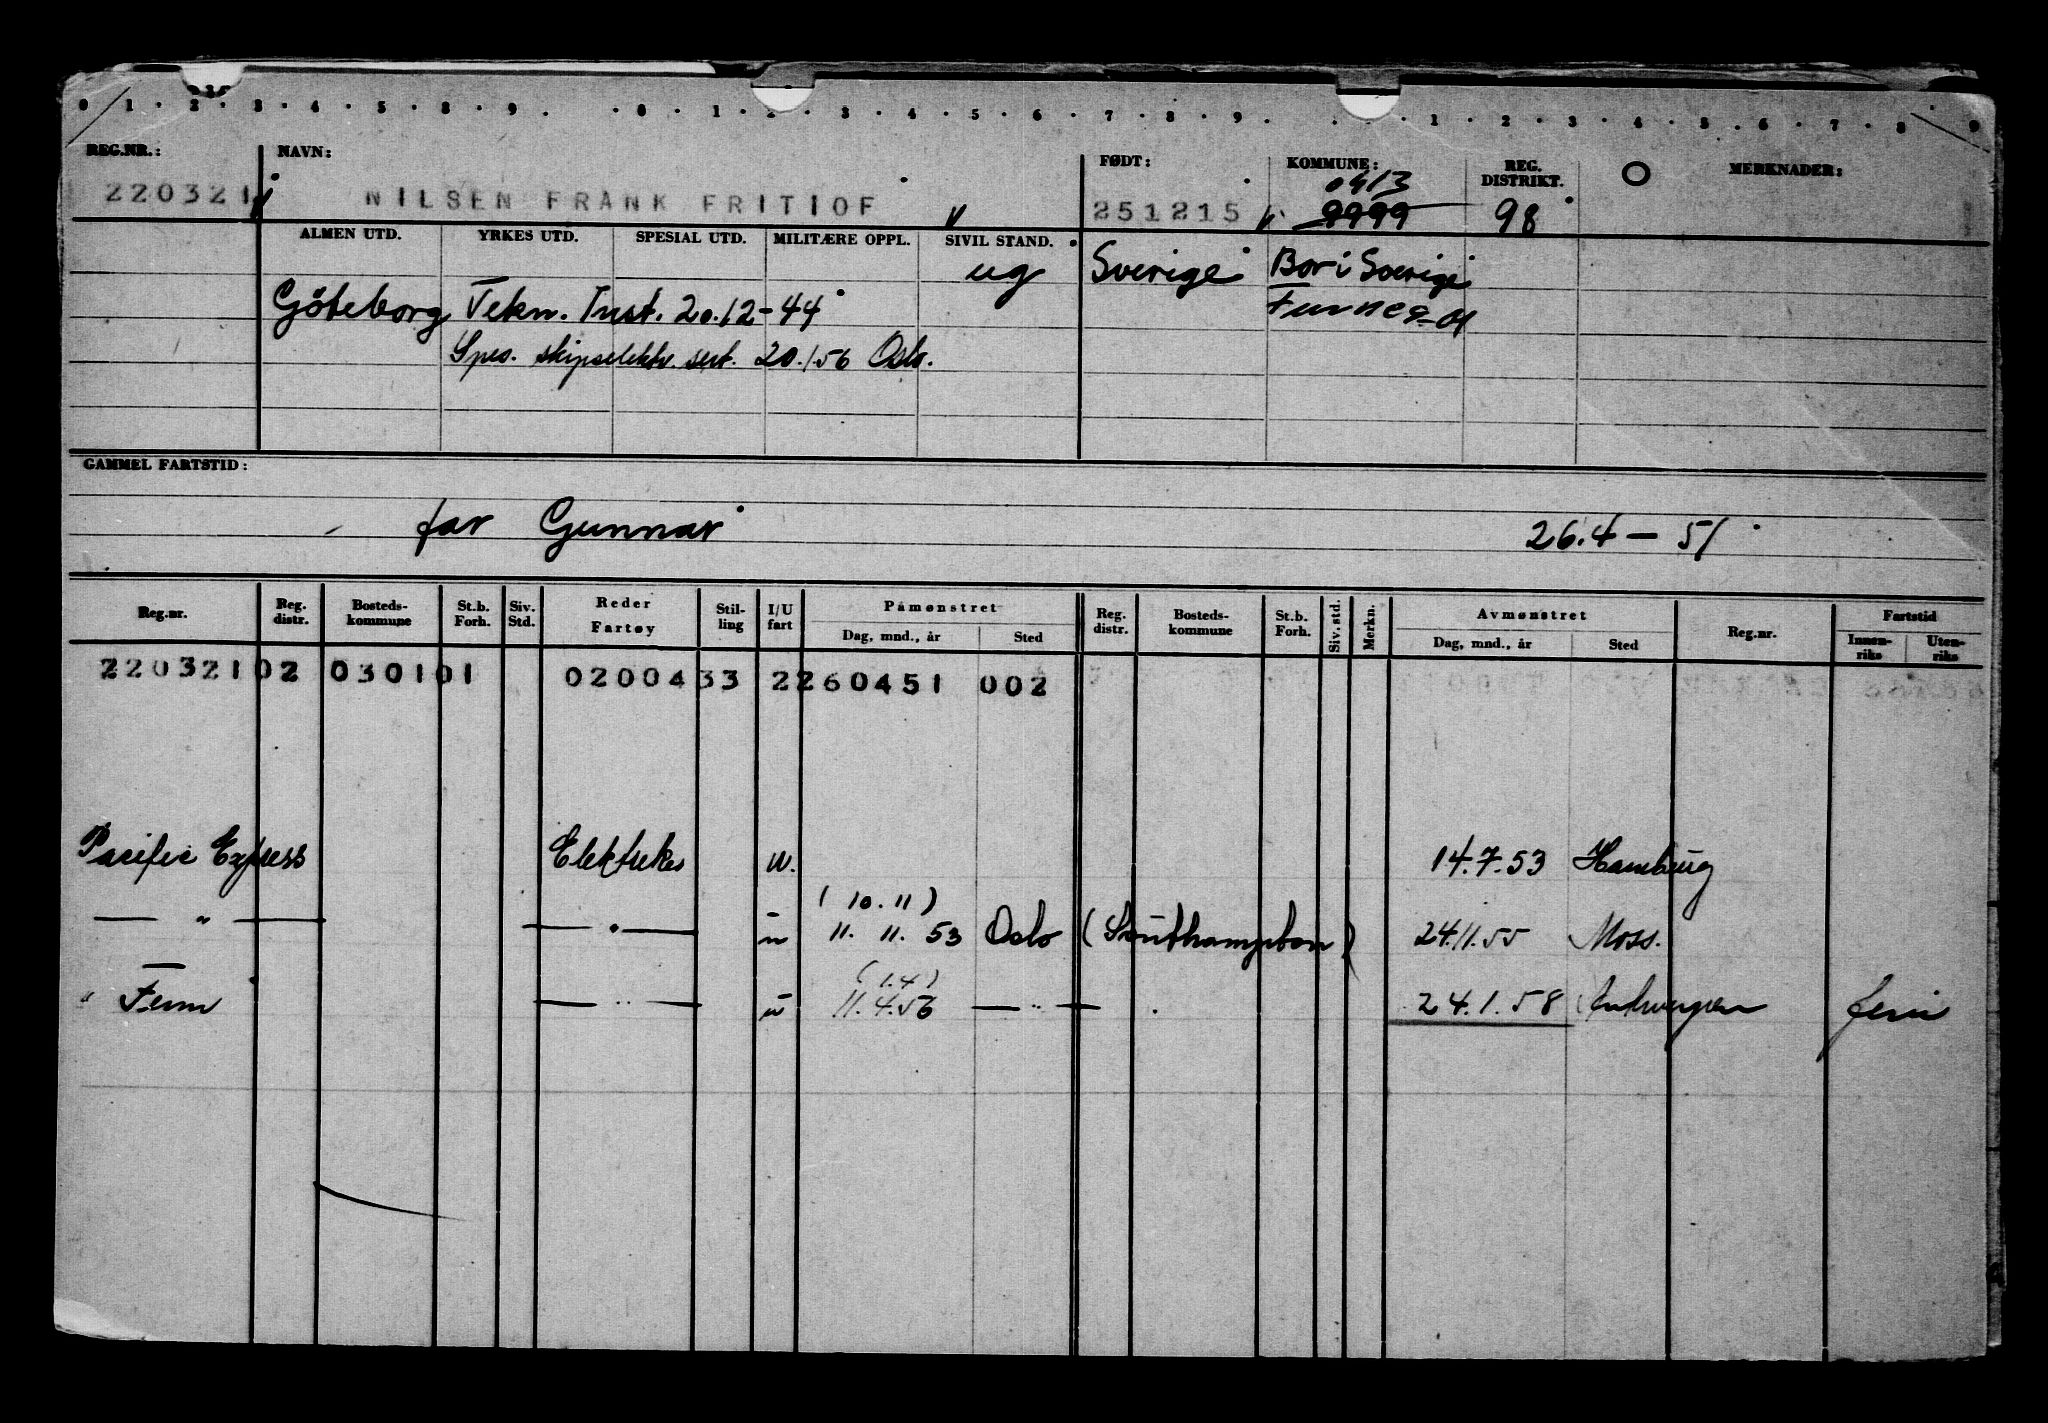 0 · 1 · 2 · 3 · 4 · 5 · 8 · 9 · · 0 · 1 · 2 · 3 · 4 · 5 · 6 · 7 · 8 · 9 · · 1 · 2 · 3 · 4 · 5 · 6 · 7 · 8 · 9
REG.NR.: NAVN: FØDT: KOMMUNE: REG. DISTRIKT. MERKNADER:
0413
220321 NILSEN FRANK FRITIOF 251215 9999 98
ALMEN UTD. YRKES UTD. SPESIAL UTD. MILITÆRE OPPL. SIVIL STAND.
ug Sverige Bor i Sverige
Göteborg Tekn. Inst. 20.12-44
Spes. skipselektr. sert. 20.1.56 Oslo.
GAMMEL FARTSTID:
far Gunnar 26.4-51
Reg.nr. Reg. distr. Bosteds-kommune St.b. Forh. Siv. Std. Reder Fartøy Stil-ling I/U fart Påmønstret Dag, mnd., år Sted Reg. distr. Bosteds-kommune St.b. Forh. Siv. std. Merkn. Avmønstret Dag, mnd., år Sted Reg.nr. Fartstid Innen-riks Uten-riks
22032102 030101 0200433 2260451 002
Pacific Express u. 14.7.53 Hamburg
(10.11)
— " — — " — u 11.11.53 Oslo (Southampton) 24.11.55 Moss.
(1.4)
" Fern — " — u 11.4.56 — " — 24.1.58 Antwerpen